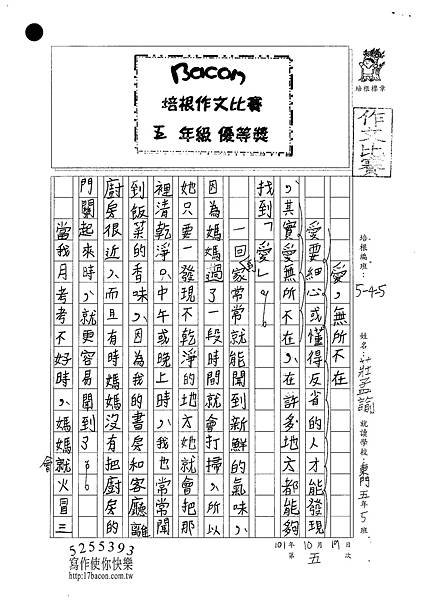 Bacon
培根作文比賽
五 年級 優等獎
培根標章
作文比賽
培根編班：5-4-5
姓名：
就讀學校：東門五年5班
101年10月19日
第五次
愛，無所不在
愛要細心或懂得反省的人才能發現
，其實愛無所不在，在許多地方都能夠
找到「愛」。
一回家常常就能聞到新鮮的氣味，
因為媽媽過了一段時間就會打掃，所以
她只要一發現不乾淨的地方她就會把那
裡清乾淨。中午或晚上時，我也常常聞
到飯菜的香味，因為我的書房和客廳離
廚房很近，而且有時媽媽沒有把廚房的
門關起來時，就更容易聞到了。
當我月考考不好時，媽媽就會火冒三
5255393
寫作使你快樂
http://17bacon.com.tw